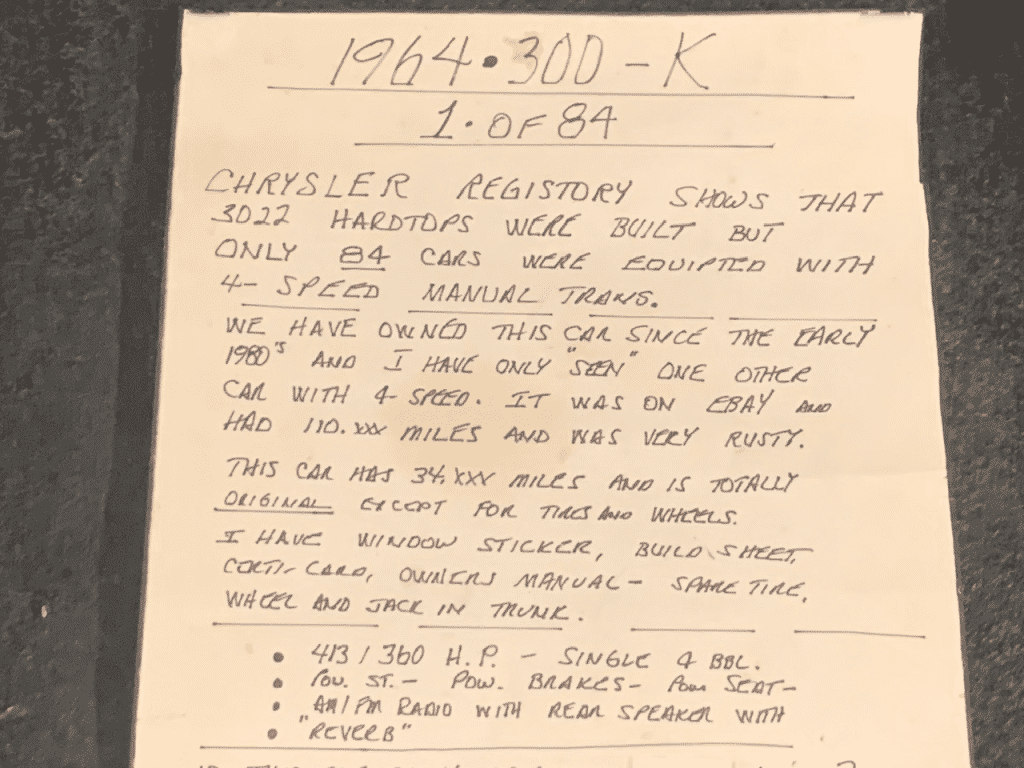 1964 • 300 - K
1 • OF 84
CHRYSLER REGISTORY SHOWS THAT
3022 HARDTOPS WERE BUILT BUT
ONLY 84 CARS WERE EQUIPTED WITH
4- SPEED MANUAL TRANS.
WE HAVE OWNED THIS CAR SINCE THE EARLY
1980'S AND I HAVE ONLY "SEEN" ONE OTHER
CAR WITH 4-SPEED. IT WAS ON EBAY AND
HAD 110.XXX MILES AND WAS VERY RUSTY.
THIS CAR HAS 34,XXX MILES AND IS TOTALLY
ORIGINAL EXCEPT FOR TIRES AND WHEELS.
I HAVE WINDOW STICKER, BUILD SHEET,
CERTI-CARD, OWNERS MANUAL - SPARE TIRE,
WHEEL AND JACK IN TRUNK.
• 413 / 360 H.P. - SINGLE 4 BBL.
• POW. ST. - POW. BRAKES - POW SEAT -
• AM/FM RADIO WITH REAR SPEAKER WITH
• "REVERB"